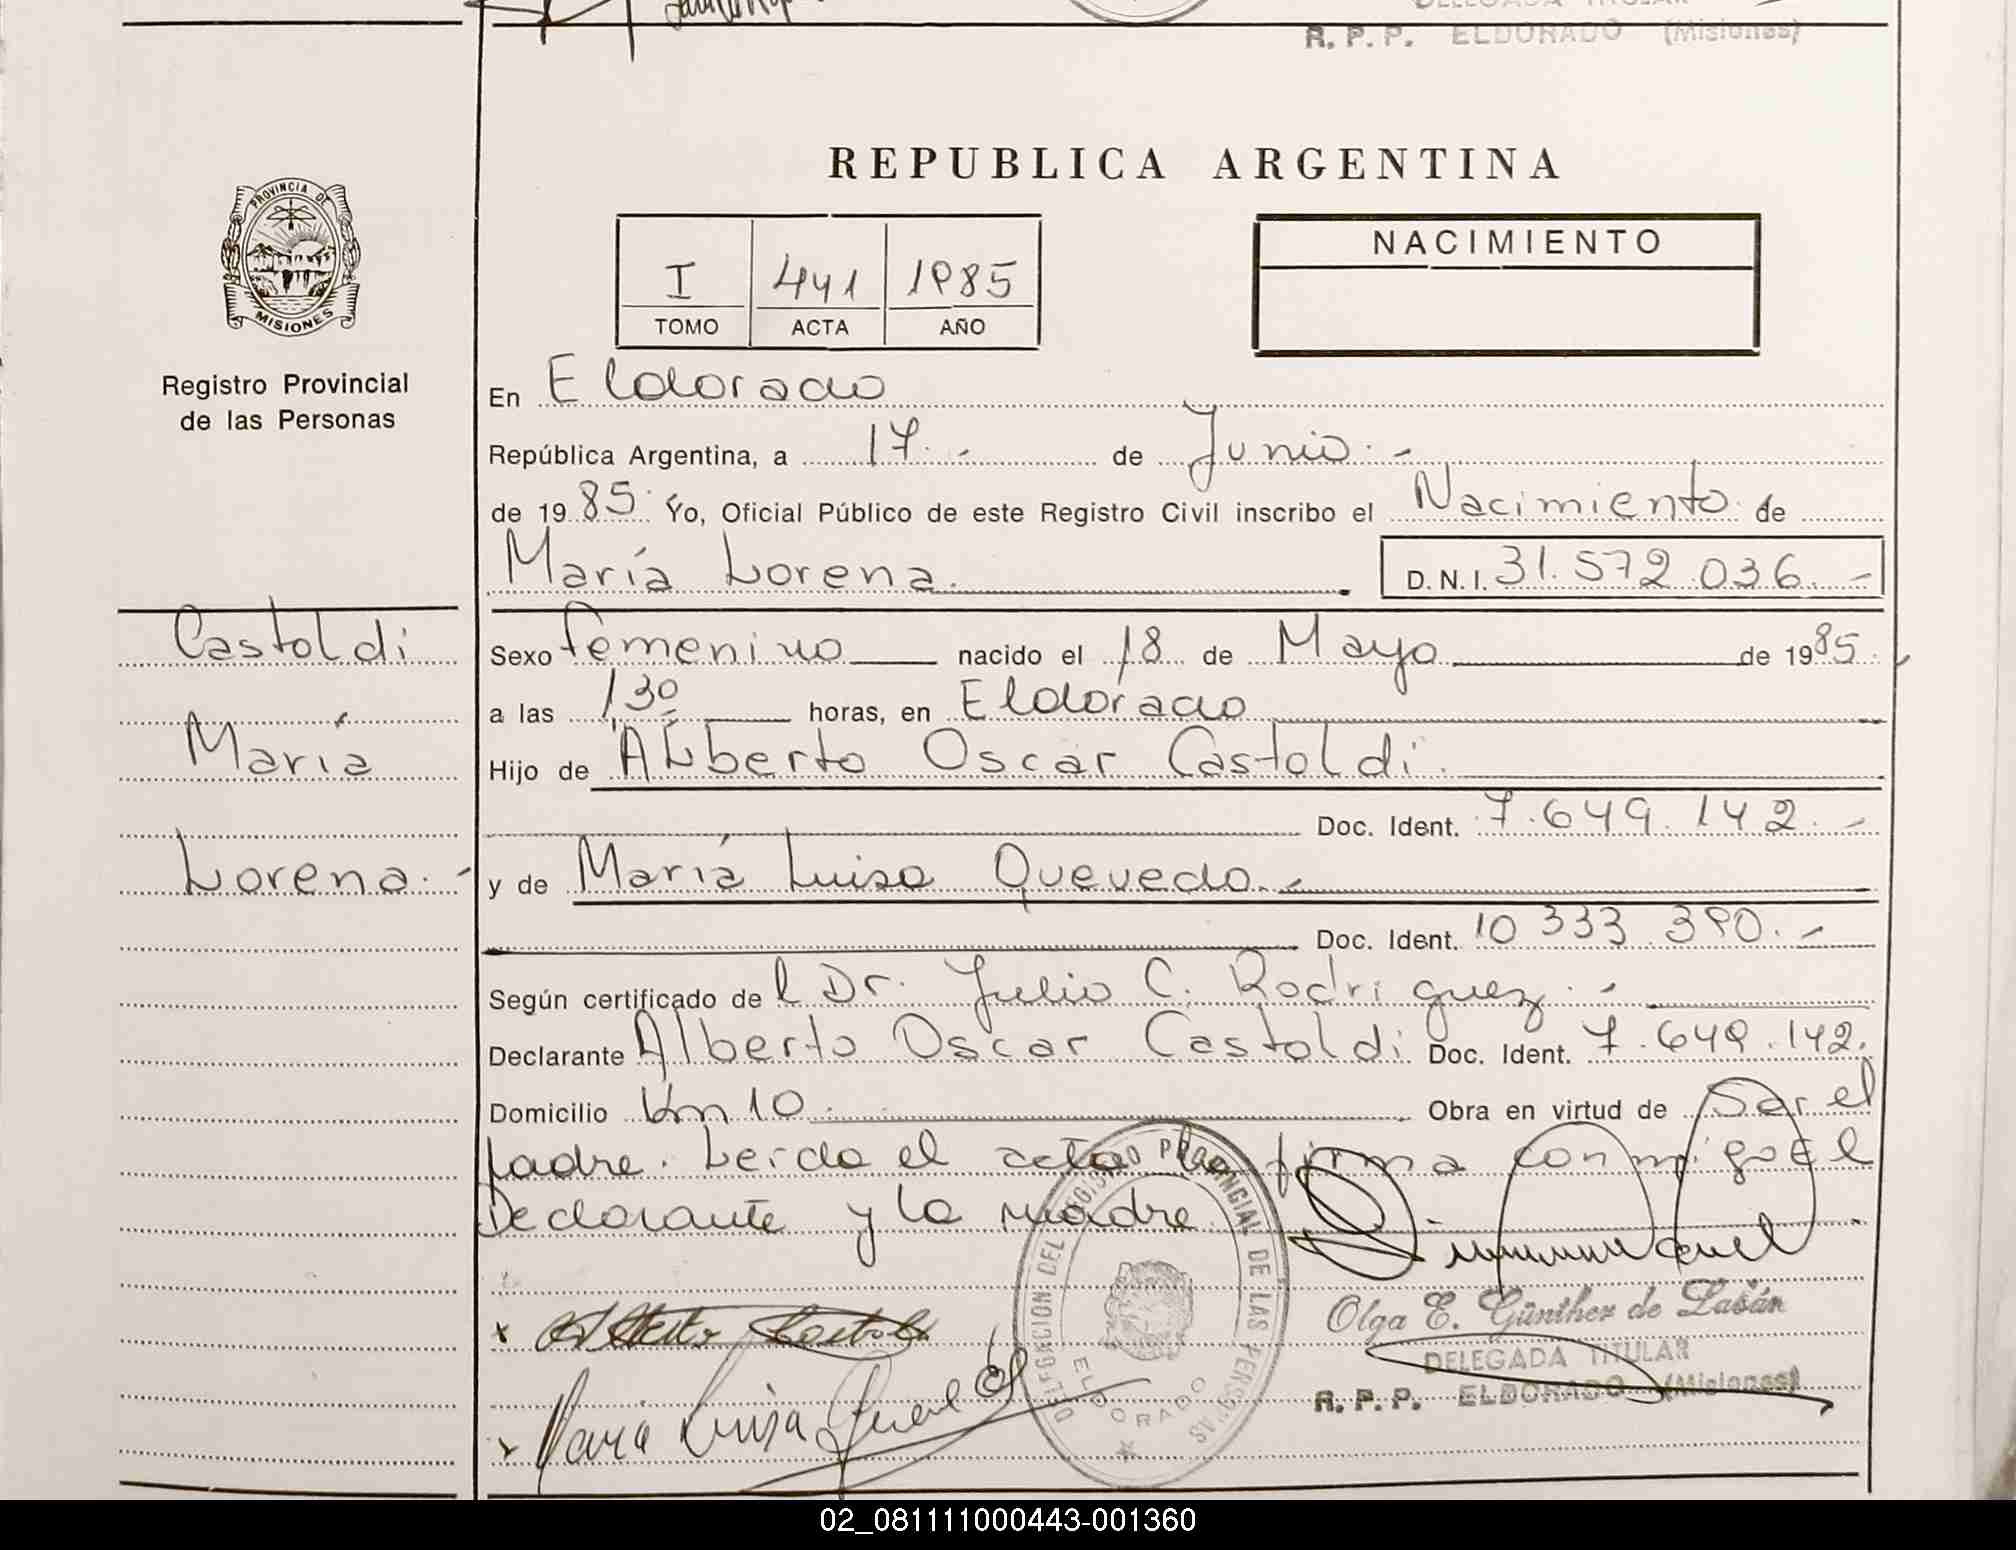 R. P. P. ELDORADO (Misiones)
REPUBLICA ARGENTINA
PROVINCIA DE
MISIONES
Registro Provincial
de las Personas
I 441 1985
TOMO ACTA AÑO
NACIMIENTO
En Eldorado
República Argentina, a 17.- de Junio.-
de 1985. Yo, Oficial Público de este Registro Civil inscribo el Nacimiento de
María Lorena. D.N.I. 31.572.036.-
Castoldi
María
Lorena.-
Sexo femenino nacido el 18 de Mayo de 1985.
a las 1,30 horas, en Eldorado
Hijo de Alberto Oscar Castoldi.
Doc. Ident. 7.649.142.-
y de María Luisa Quevedo.-
Doc. Ident. 10.333.390.-
Según certificado del Dr. Julio C. Rodriguez.-
Declarante Alberto Oscar Castoldi Doc. Ident. 7.649.142.
Domicilio Km 10. Obra en virtud de Ser el
padre. Leída el acta la firma conmigo El
Declarante y la madre.
DELEGACION DEL REGISTRO PROVINCIAL DE LAS PERSONAS
ELDORADO
x Alberto Castoldi
x Maria Luisa Quevedo
Olga E. Günther de Labán
DELEGADA TITULAR
R. P. P. ELDORADO (Misiones)
02_081111000443-001360